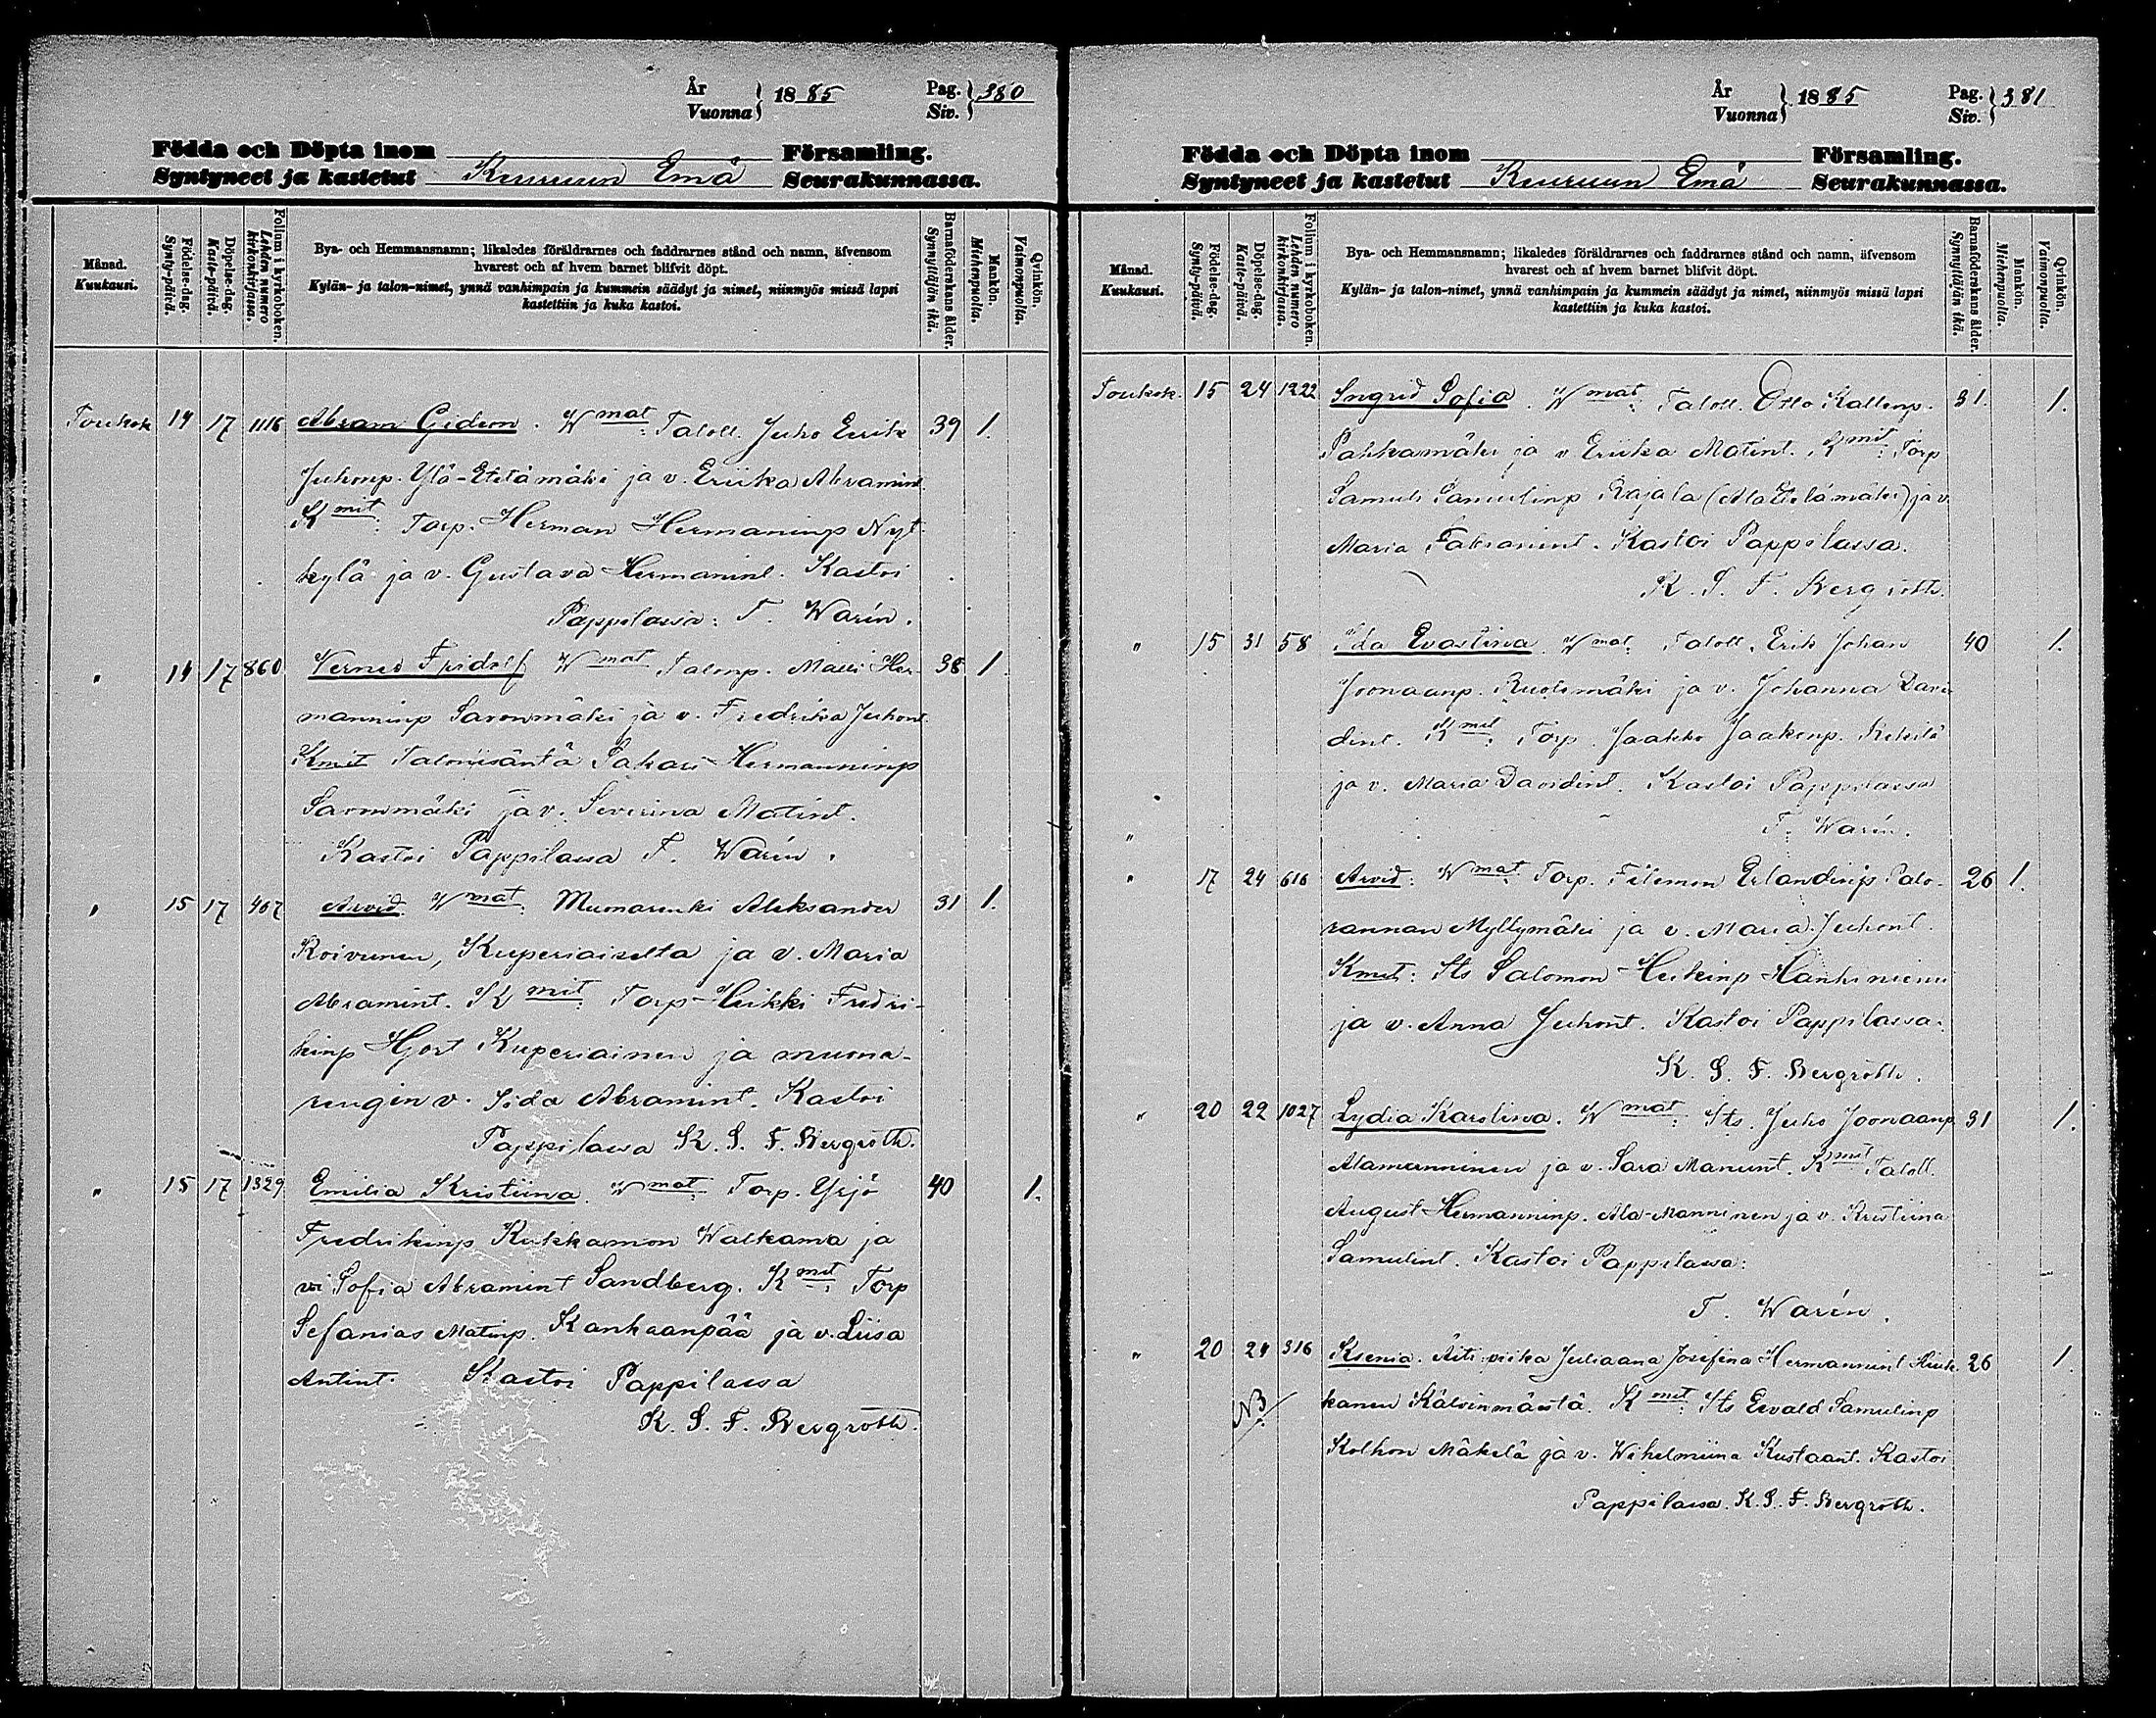 År Vuonna } 1885 Pag. Siv. } 380
Födda och Döpta inom Församling.
Syntyneet ja kastetut Keuruun Emä Seurakunnassa.
Månad. Kuukausi.
Födelse-dag. Synty-päivä.
Döpelse-dag. Kaste-päivä.
Folium i kyrkoboken. Lehden numero kirkonkirjassa.
Bya- och Hemmansnamn; likaledes föräldrarnes och faddrarnes stånd och namn, äfvensom
hvarest och af hvem barnet blifvit döpt.
Kylän- ja talon-nimet, ynnä vanhimpain ja kummein säädyt ja nimet, niinmyös missä lapsi
kastettiin ja kuka kastoi.
Barnaföderskans ålder. Synnyttäjän ikä.
Mankön. Miehenpuolia.
Qvinkön. Vaimonpuolia.
Toukok 14 17 1116 Abram Gideon. Wmat: Taloll. Juho Eerik 39 1.
Juhonp. Ylä-Etelämäki ja v. Eriika Abramint.
Kmit: Torp. Herman Hermaninp Nyt-
kylä ja v. Gustava Hermanint. Kastoi
Pappilassa: F. Warén.
" 14 17 860 Verner Fridolf Wmat Talonp. Matti Her- 38 1
manninp Saronmäki ja v. Fredrika Juhont.
Kmit Talonisäntä Sakari Hermanninp
Saronmäki ja v. Severina Matint.
Kastoi Pappilassa F. Warén.
" 15 17 407 Arvid. Wmat: Muonarenki Aleksander 31 1.
Koivunen, Kuperiaiselta ja v. Maria
Abramint. Kmit: Torp Heikki Fredri-
kinp Hjort Kuperiainen ja muona-
rengin v. Iida Abramint. Kastoi
Pappilassa K. S. F. Bergroth.
" 15 17 1329 Emilia Kristiina. Wmat: Torp. Yrjö 40 1.
Fredrikinp Kukkamon Walkama ja
v. Sofia Abramint Sandberg. Kmit: Torp
Sefanias Matinp. Kankaanpää ja v. Liisa
Antint. Kastoi Pappilassa
K. S. F. Bergroth.
År Vuonna } 1885 Pag. Siv. } 381
Födda och Döpta inom Församling.
Syntyneet ja kastetut Keuruun Emä Seurakunnassa.
Månad. Kuukausi.
Födelse-dag. Synty-päivä.
Döpelse-dag. Kaste-päivä.
Folium i kyrkoboken. Lehden numero kirkonkirjassa.
Bya- och Hemmansnamn; likaledes föräldrarnes och faddrarnes stånd och namn, äfvensom
hvarest och af hvem barnet blifvit döpt.
Kylän- ja talon-nimet, ynnä vanhimpain ja kummein säädyt ja nimet, niinmyös missä lapsi
kastettiin ja kuka kastoi.
Barnaföderskans ålder. Synnyttäjän ikä.
Mankön. Miehenpuolia.
Qvinkön. Vaimonpuolia.
Toukok. 15 24 1222 Ingrid Sofia. Wmat: Taloll. Otto Kallenp. 31. 1.
Pahkamäki ja v Eriika Matint. Kmit: Torp
Samuli Samulinp Rajala (Ala Etelämäki) ja v.
Maria Fabianint. Kastoi Pappilassa.
K. S. F. Bergroth.
" 15 31 58 Ida Evastiina. Wmat: Taloll. Erik Johan 40 1.
Joonaanp. Ruolomäki ja v. Johanna Davi-
dint. Kmit: Torp. Jaakko Jaakonp.
ja v. Maria Davidint. Kastoi Pappilassa
" F. Warén.
" 17 24 616 Arvid: Wmat: Torp. Filemon Erlandinp Palo- 26 1.
rannan Myllymäki ja v. Maria Juhont.
Kmit: Its Salomon Heikinp Hankiniemi
ja v. Anna Juhont. Kastoi Pappilassa.
K. S. F. Bergroth.
" 20 22 1027 Lydia Karoliina. Wmat: Its. Juho Joonaanp 31 1.
Alamanninen ja v. Sara Manunt. Kmit Taloll.
August Hermanninp. Ala-Manninen ja v. Kristiina
Samulint. Kastoi Pappilassa:
F. Warén.
" 20 24 316 Ksenia. Äiti piika Juliaana Josefina Hermannint 26 1.
NB kanen Kälvinmäestä. Kmit: Its Eevald Samulinp
Kolhon Mäkelä ja v. Wihelmiina Kustaant. Kastoi
Pappilassa. K. S. F. Bergroth.